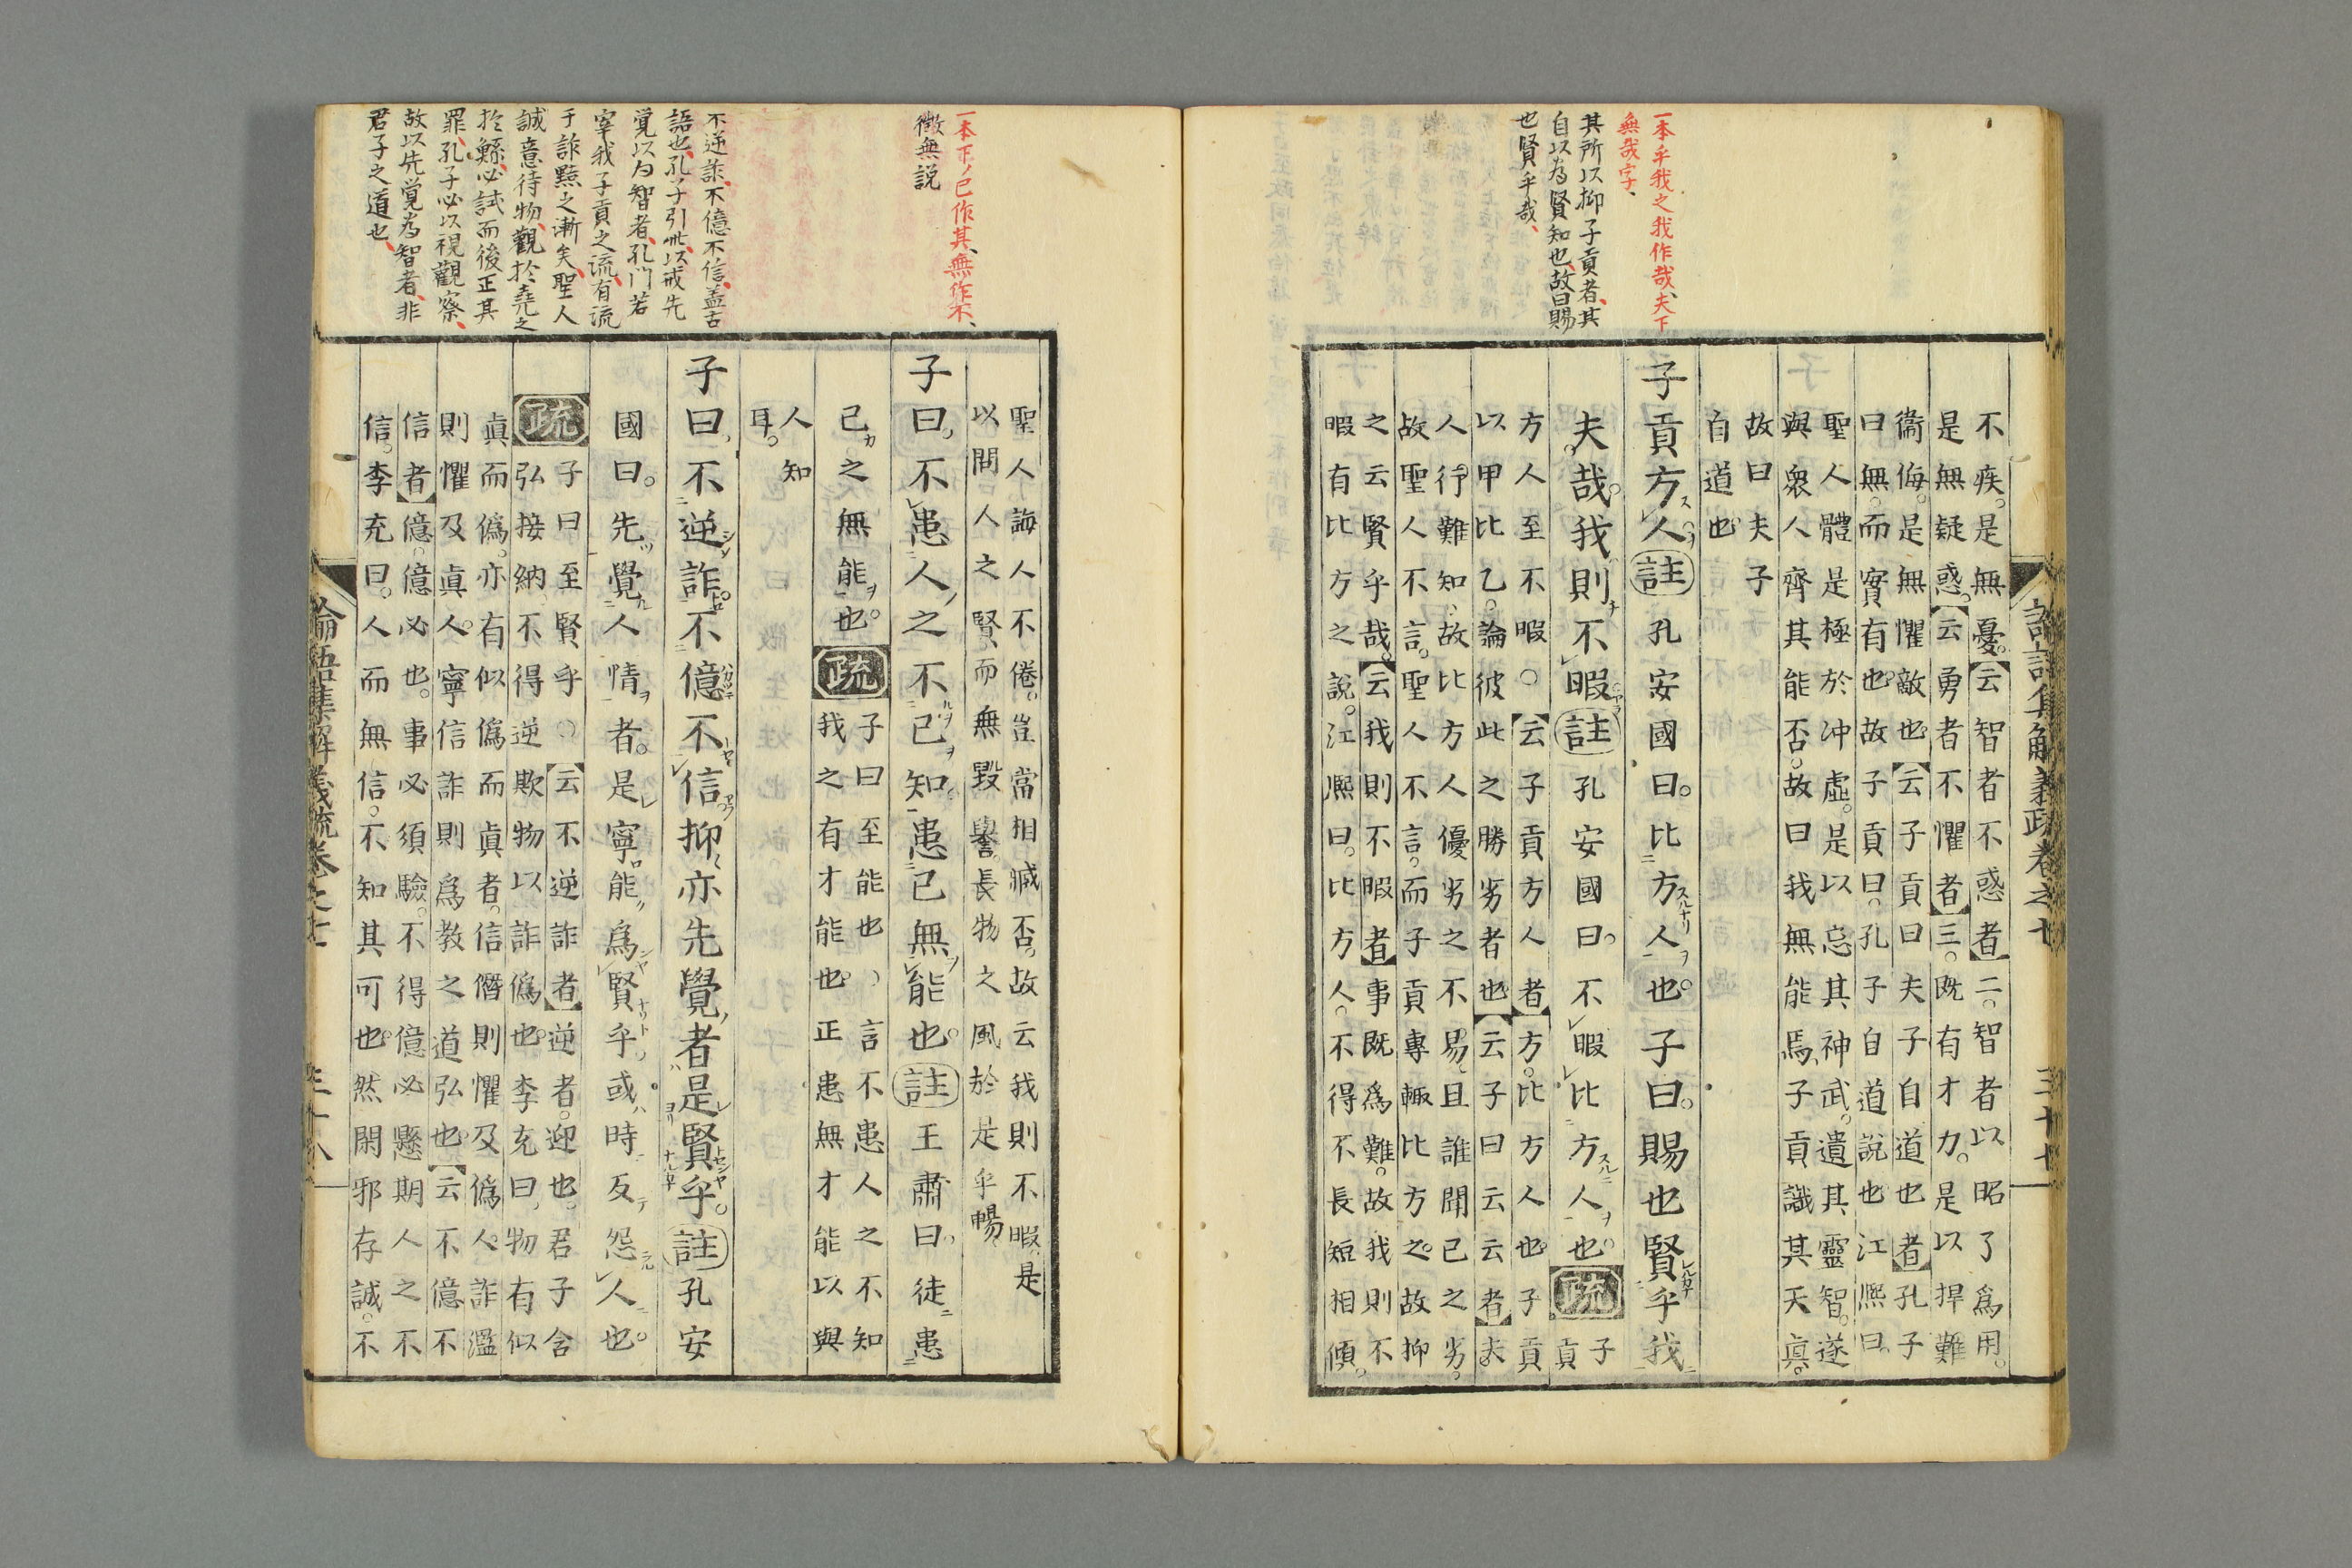 一本乎我之我作哉夫下
無哉字
其所以抑子貢者其
自以為賢知也故曰賜
也賢乎哉
不疾是無憂云智者不惑者二智者以昭了爲用
是無疑惑云勇者不懼者三既有才力是以捍難
衞侮是無懼敵也云子貢曰夫子自道也者孔子
曰無而實有也故子貢曰孔子自道説也江熈曰
聖人體是極於冲虛是以忘其神武遺其靈智遂
與衆人齊其能否故曰我無能焉子貢識其天眞
故曰夫子
自道也
子貢方人註孔安國曰比方人也子曰賜也賢乎我
夫哉我則不暇註孔安國曰不暇比方人也疏子
貢
方人至不暇○云子貢方人者方比方人也子貢
以甲比乙論彼此之勝劣者也云子曰云云者夫
人行難知故比方人優劣之不易且誰聞己之劣
故聖人不言聖人不言而子貢專輙比方之故抑
之云賢乎哉云我則不暇者事既爲難故我則不
暇有比方之說江熈曰比方人不得不長短相傾
論語集解義疏卷之七 三十七
一本下ノ己作其無作不
徵無説
不逆詐不億不信蓋古
語也孔子引此以戒先
覚以为智者孔門若
宰我子貢之流有流
于詐黠之漸矣聖人
誠意待物觀於堯之
於鯀必試而後正其
罪孔子必以視觀察
故以先覚為智者非
君子之道也
聖人誨人不倦豈當相臧否故云我則不暇是
以問人之賢而無毀譽長物之風於是乎暢
子曰不患人之不己知患己無能也註王肅曰徒患
己之無能也疏子曰至能也 言不患人之不知
我之有才能也正患無才能以與
人知
耳
子曰不逆詐不億不信抑亦先覺者是賢乎註孔安
國曰先覺人情者是寧能爲賢乎或時反怨人也
疏子曰至賢乎○云不逆詐者逆者迎也君子含
弘接納不得逆欺物以詐僞也李充曰物有似
眞而僞亦有似僞而眞者信僭則懼及僞人詐濫
則懼及眞人寧信詐則爲敎之道弘也云不億不
信者億億必也事必須驗不得億必懸期人之不
信李充曰人而無信不知其可也然閑邪存誠不
論語集解義疏卷之七 三十八